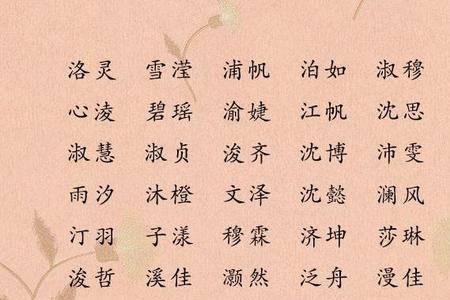 洛灵 雪滢 浦帆 泊如 淑穆
心凌 碧瑶 渝婕 江帆 沈思
淑慧 淑贞 浚齐 沈博 沛雯
雨汐 沐橙 文泽 沈懿 澜风
汀羽 子漾 穆霖 济坤 莎琳
浚哲 溪佳 灏然 泛舟 漫佳